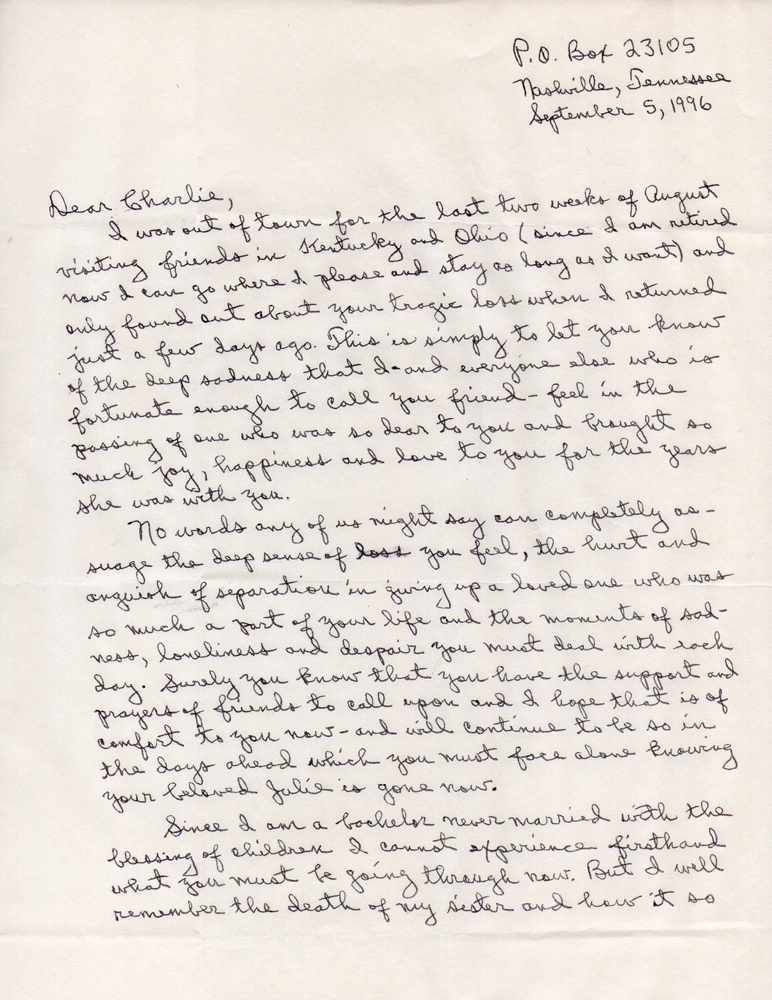 P.O. Box 23105
Nashville, Tennessee
September 5, 1996
Dear Charlie,
I was out of town for the last two weeks of August
visiting friends in Kentucky and Ohio (since I am retired
now I can go where I please and stay as long as I want) and
only found out about your tragic loss when I returned
just a few days ago. This is simply to let you know
of the deep sadness that I - and everyone else who is
fortunate enough to call you friend - feel in the
passing of one who was so dear to you and brought so
much joy, happiness and love to you for the years
she was with you.
No words any of us might say can completely as-
suage the deep sense of loss you feel, the hurt and
anguish of separation in giving up a loved one who was
so much a part of your life and the moments of sad-
ness, loneliness and despair you must deal with each
day. Surely you know that you have the support and
prayers of friends to call upon and I hope that is of
comfort to you now - and will continue to be so in
the days ahead which you must face alone knowing
your beloved Julie is gone now.
Since I am a bachelor never married with the
blessing of children I cannot experience firsthand
what you must be going through now. But I well
remember the death of my sister and how it so